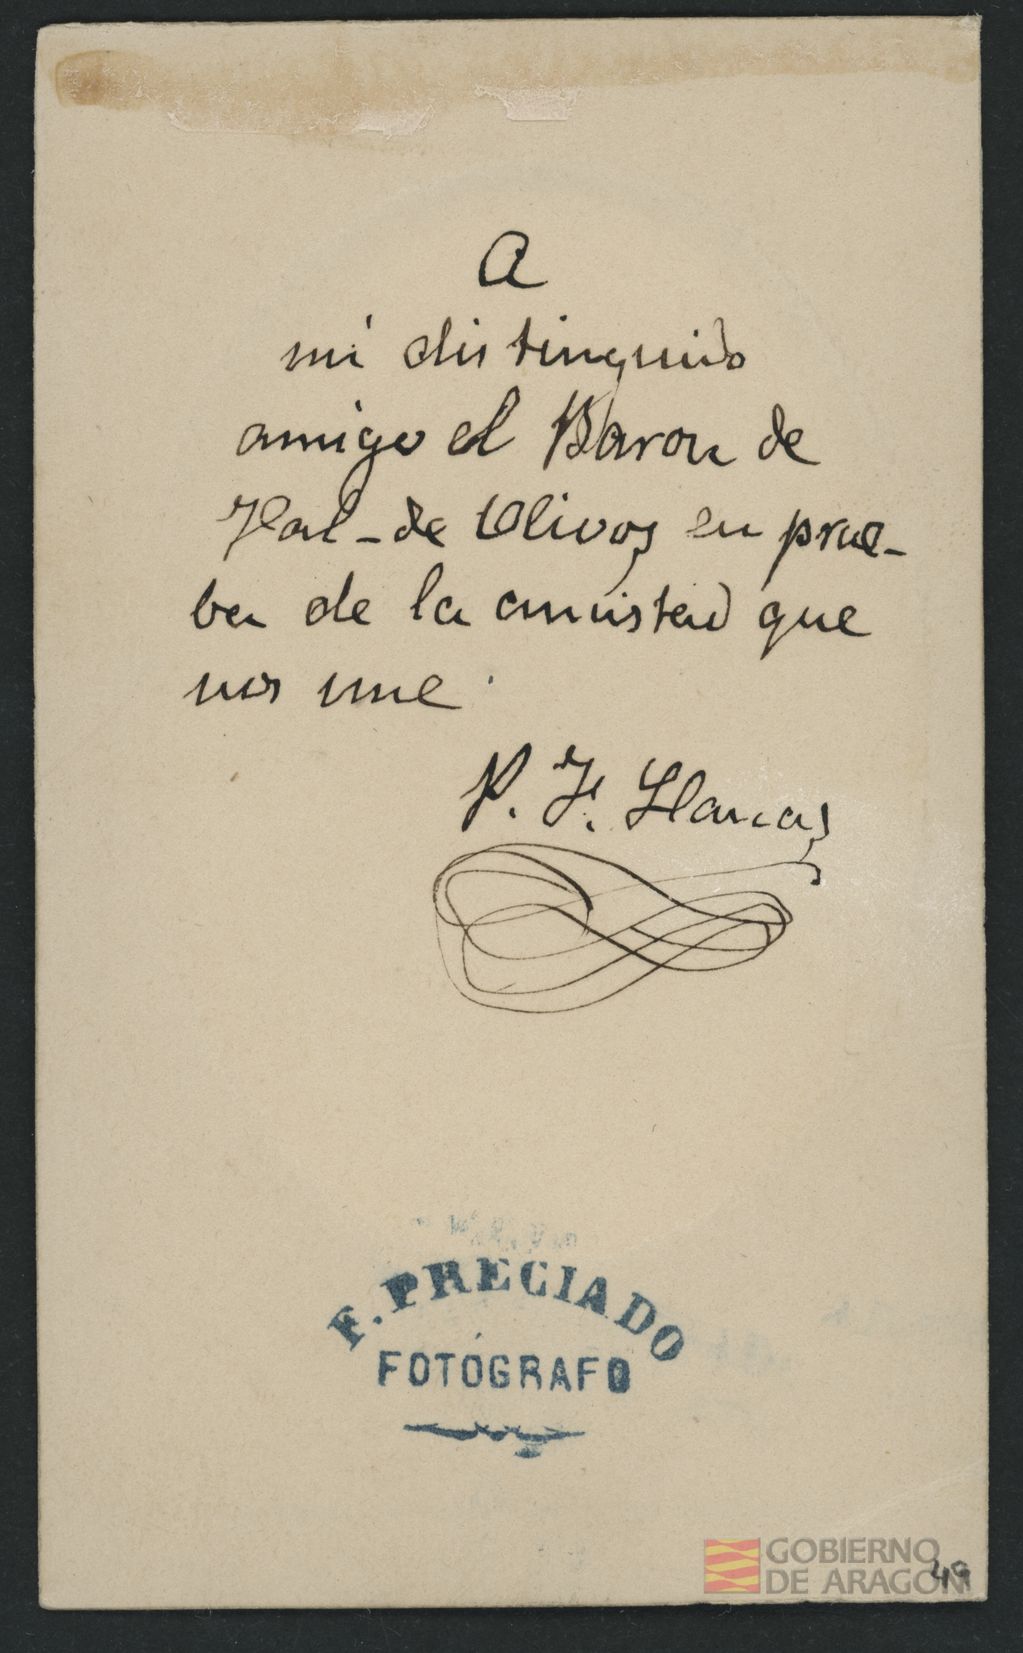 A
mi distinguido
amigo el Baron de
Val-de Olivos en prue-
ba de la amistad que
nos une.
P. F. Llanas
F. PRECIADO
FOTÓGRAFO
GOBIERNO
DE ARAGON
49